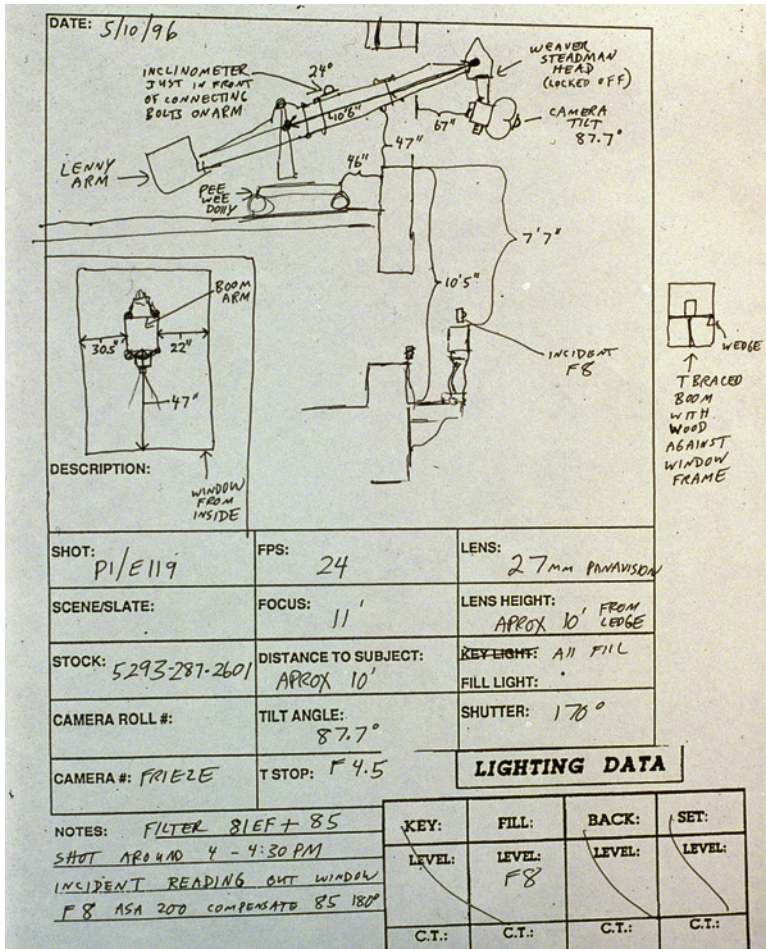 DATE: 5/10/96
INCLINOMETER
JUST IN FRONT
OF CONNECTING
BOLTS ON ARM
24°
WEAVER
STEADMAN
HEAD
(LOCKED OFF)
CAMERA
TILT
87.7°
10'6"
67"
47"
46"
LENNY
ARM
PEE
WEE
DOLLY
7'7"
10'5"
INCIDENT
F8
BOOM
ARM
30.5"
22"
47"
WINDOW
FROM
INSIDE
WEDGE
T BRACED
BOOM
WITH
WOOD
AGAINST
WINDOW
FRAME
DESCRIPTION:
SHOT: P1/E119
FPS: 24
LENS: 27mm PANAVISION
SCENE/SLATE:
FOCUS: 11'
LENS HEIGHT: APROX 10' FROM LEDGE
STOCK: 5293-287-2601
DISTANCE TO SUBJECT: APROX 10'
KEY LIGHT: All FILL
FILL LIGHT:
CAMERA ROLL #:
TILT ANGLE: 87.7°
SHUTTER: 170°
CAMERA #: FRIEZE
T STOP: F 4.5
LIGHTING DATA
NOTES: FILTER 81EF + 85
SHOT AROUND 4 - 4:30 PM
INCIDENT READING OUT WINDOW
F 8 ASA 200 COMPENSATE 85 180°
KEY: FILL: BACK: SET:
LEVEL: LEVEL: F8 LEVEL: LEVEL:
C.T.: C.T.: C.T.: C.T.: